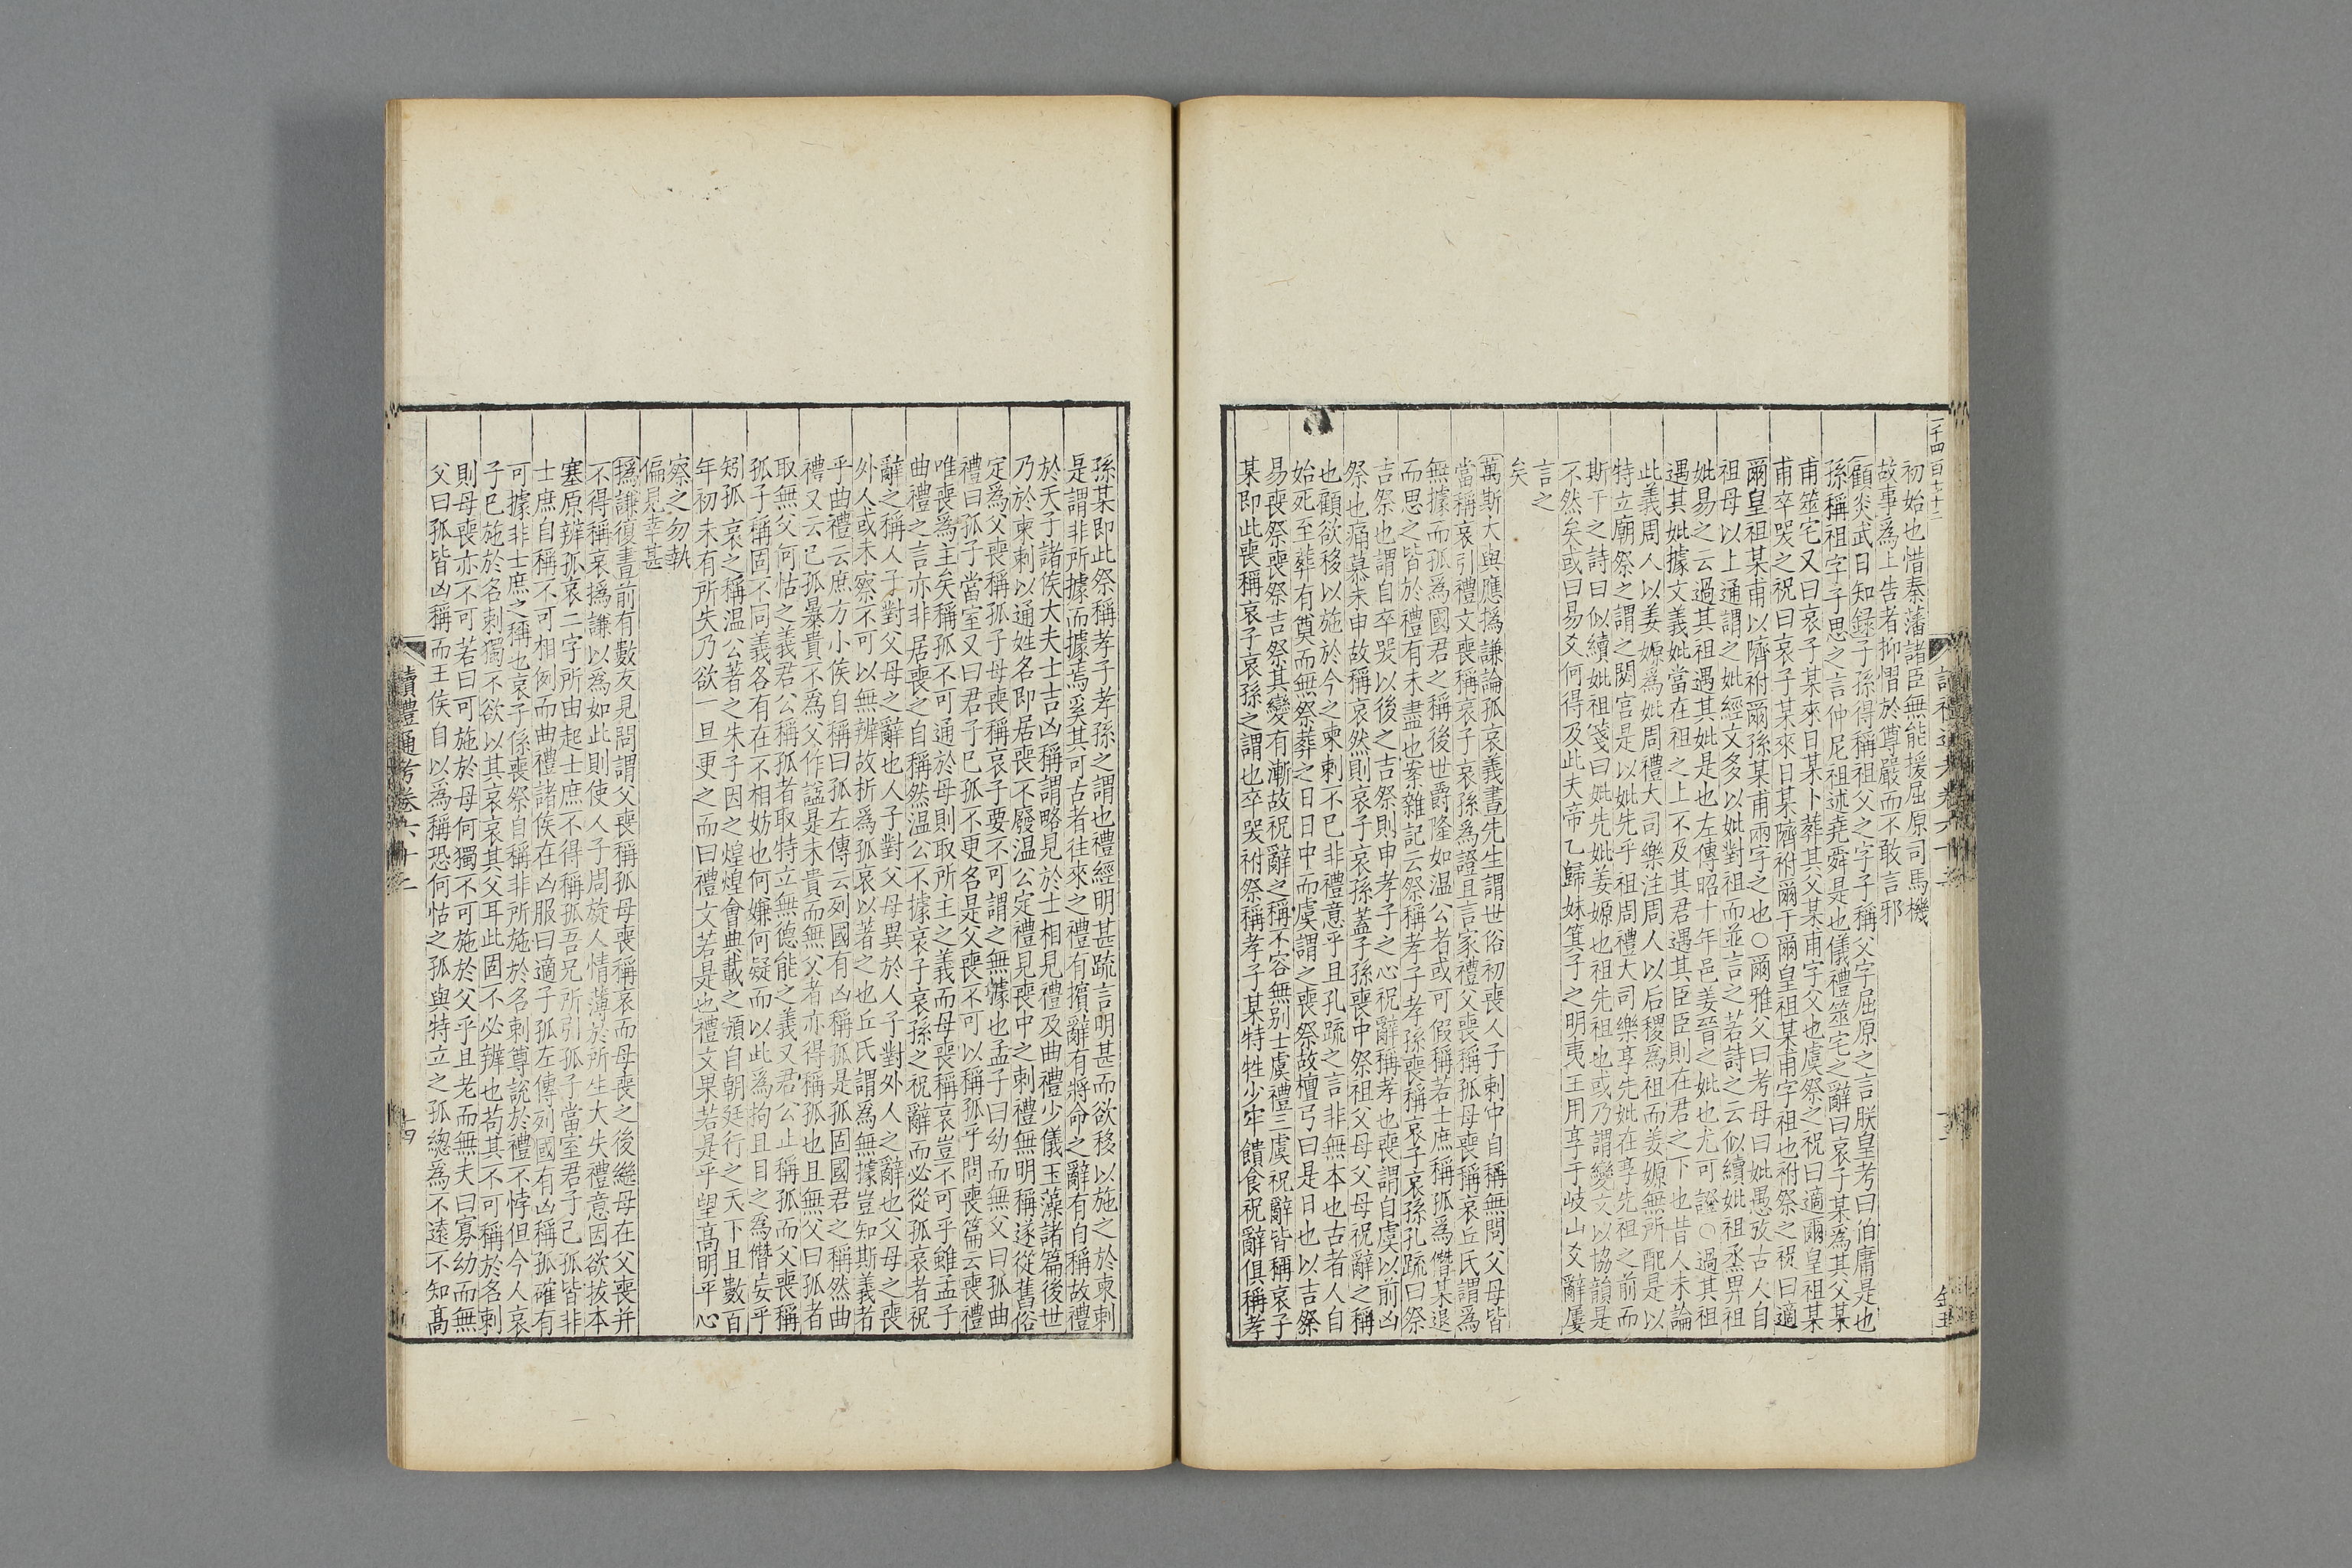 一千四百七十二
初始也惜秦藩諸臣無能援屈原司馬機
故事爲上告者抑慴於尊嚴而不敢言邪
顧炎武日知録子孫得稱祖父之字子稱父字屈原之言朕皇考曰伯庸是也
孫稱祖字子思之言仲尼祖述堯舜是也儀禮筮宅之辭曰哀子某爲其父某
甫筮宅又曰哀子某來日某卜葬其父某甫字父也虞祭之祝曰適爾皇祖某
甫卒哭之祝曰哀子某來日某隮祔爾于爾皇祖某甫字祖也祔祭之祝曰適
爾皇祖某甫以隮祔爾孫某甫兩字之也○爾雅父曰考母曰妣愚攷古人自
祖母以上通謂之妣經文多以妣對祖而並言之若詩之云似續妣祖烝畀祖
妣易之云過其祖遇其妣是也左傳昭十年邑姜晉之妣也尤可證○過其祖
遇其妣據文義妣當在祖之上不及其君遇其臣臣則在君之下也昔人未論
此義周人以姜嫄爲妣周禮大司樂注周人以后稷爲祖而姜嫄無所配是以
特立廟祭之謂之閟宫是以妣先乎祖周禮大司樂享先妣在享先祖之前而
斯干之詩曰似續妣祖箋曰妣先妣姜嫄也祖先祖也或乃謂變文以協韻是
不然矣或曰易爻何得及此夫帝乙歸妹箕子之明夷王用享于岐山爻辭屢
言之
矣
萬斯大與應撝謙論孤哀義書先生謂世俗初喪人子刺中自稱無問父母皆
當稱哀引禮文喪稱哀子哀孫爲證且言家禮父喪稱孤母喪稱哀丘氏謂爲
無據而孤爲國君之稱後世爵隆如温公者或可假稱若士庶稱孤爲僭某退
而思之皆於禮有未盡也案雜記云祭稱孝子孝孫喪稱哀子哀孫孔疏曰祭
吉祭也謂自卒哭以後之吉祭則申孝子之心祝辭稱孝也喪謂自虞以前凶
祭也痛慕未申故稱哀然則哀子哀孫蓋子孫喪中祭祖父母父母祝辭之稱
也顧欲移以施於今之柬刺不已非禮意乎且孔疏之言非無本也古者人自
始死至葬有奠而無祭葬之日日中而虞謂之喪祭故檀弓曰是日也以吉祭
易喪祭喪祭吉祭其變有漸故祝辭之稱不容無别士虞禮三虞祝辭皆稱哀子
某即此喪稱哀子哀孫之謂也卒哭祔祭稱孝子某特牲少牢饋食祝辭俱稱孝
孫某即此祭稱孝子孝孫之謂也禮經明甚疏言明甚而欲移以施之於柬刺
是謂非所據而據焉奚其可古者往來之禮有擯辭有將命之辭有自稱故禮
於天子諸侯大夫士吉凶稱謂略見於士相見禮及曲禮少儀玉藻諸篇後世
乃於柬刺以通姓名即居喪不廢温公定禮見喪中之刺禮無明稱遂從舊俗
定爲父喪稱孤子母喪稱哀子要不可謂之無據也孟子曰幼而無父曰孤曲
禮曰孤子當室又曰君子已孤不更名是父喪不可以稱孤乎問喪篇云喪禮
唯喪爲主矣稱孤不可通於母則取所主之義而母喪稱哀豈不可乎雖孟子
曲禮之言亦非居喪之自稱然温公不據哀子哀孫之祝辭而必從孤哀者祝
辭之稱人子對父母之辭也人子對父母異於人子對外人之辭也父母之喪
外人或未察不可以無辨故析爲孤哀以著之也丘氏謂爲無據豈知斯義者
乎曲禮云庶方小侯自稱曰孤左傳云列國有凶稱孤是孤固國君之稱然曲
禮又云已孤暴貴不爲父作謚是未貴而無父者亦得稱孤也且無父曰孤者
取無父何怙之義君公稱孤者取特立無德能之義又君公止稱孤而父喪稱
孤子稱固不同義各有在不相妨也何嫌何疑而以此爲拘且目之爲僭妄乎
矧孤哀之稱温公著之朱子因之煌煌會典載之頒自朝廷行之天下且數百
年初未有所失乃欲一旦更之而曰禮文若是也禮文果若是乎望高明平心
察之勿執
偏見幸甚
撝謙復書前有數友見問謂父喪稱孤母喪稱哀而母喪之後繼母在父喪并
不得稱哀撝謙以爲如此則使人子周旋人情薄於所生大失禮意因欲拔本
塞原辨孤哀二字所由起士庶不得稱孤吾兄所引孤子當室君子已孤皆非
士庶自稱不可相例而曲禮諸侯在凶服曰適子孤左傳列國有凶稱孤確有
可據非士庶之稱也哀子係喪祭自稱非所施於名刺尊説於禮不悖但今人哀
子已施於名刺獨不欲以其哀哀其父耳此固不必辨也苟其不可稱於名刺
則母喪亦不可若曰可施於母何獨不可施於父乎且老而無夫曰寡幼而無
父曰孤皆凶稱而王侯自以爲稱恐何怙之孤與特立之孤總爲不遠不知高
讀禮通考卷六十二
十四